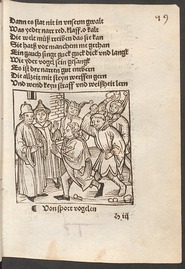 Dann es stat nit in unserm gwalt
Was yeder narr red, klaff, o kalt
Die welt muß treiben das sie kan
Sie hatß vor manchem me gethan
Ein gauch singt guck guck dick und langk
Wie yder vogel sein gesangk
Es ist der narren gut
Die alzeit mit steyn werffen gern
Und wend keyn straff und weißheit lern
Von spott vogelen